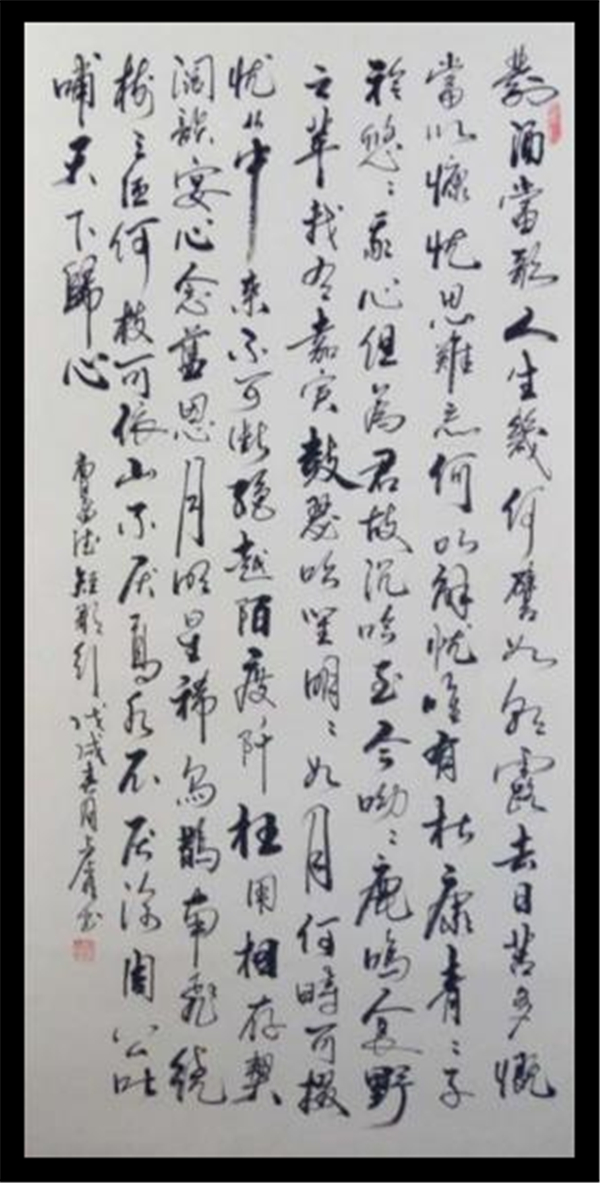 對酒當歌人生幾何譬如朝露去日苦多慨
當以慷忧思難忘何以解忧唯有杜康青〻子
衿悠〻我心但為君故沉吟至今呦〻鹿鳴食野
之苹我有嘉宾鼓瑟吹笙明〻如月何時可掇
忧从中来不可断绝越陌度阡枉用相存契
阔談宴心念舊恩月明星稀烏鵲南飛绕
樹三匝何枝可依山不厌高水不厌深周公吐
哺天下歸心
曹孟德短歌行戊戌春月书